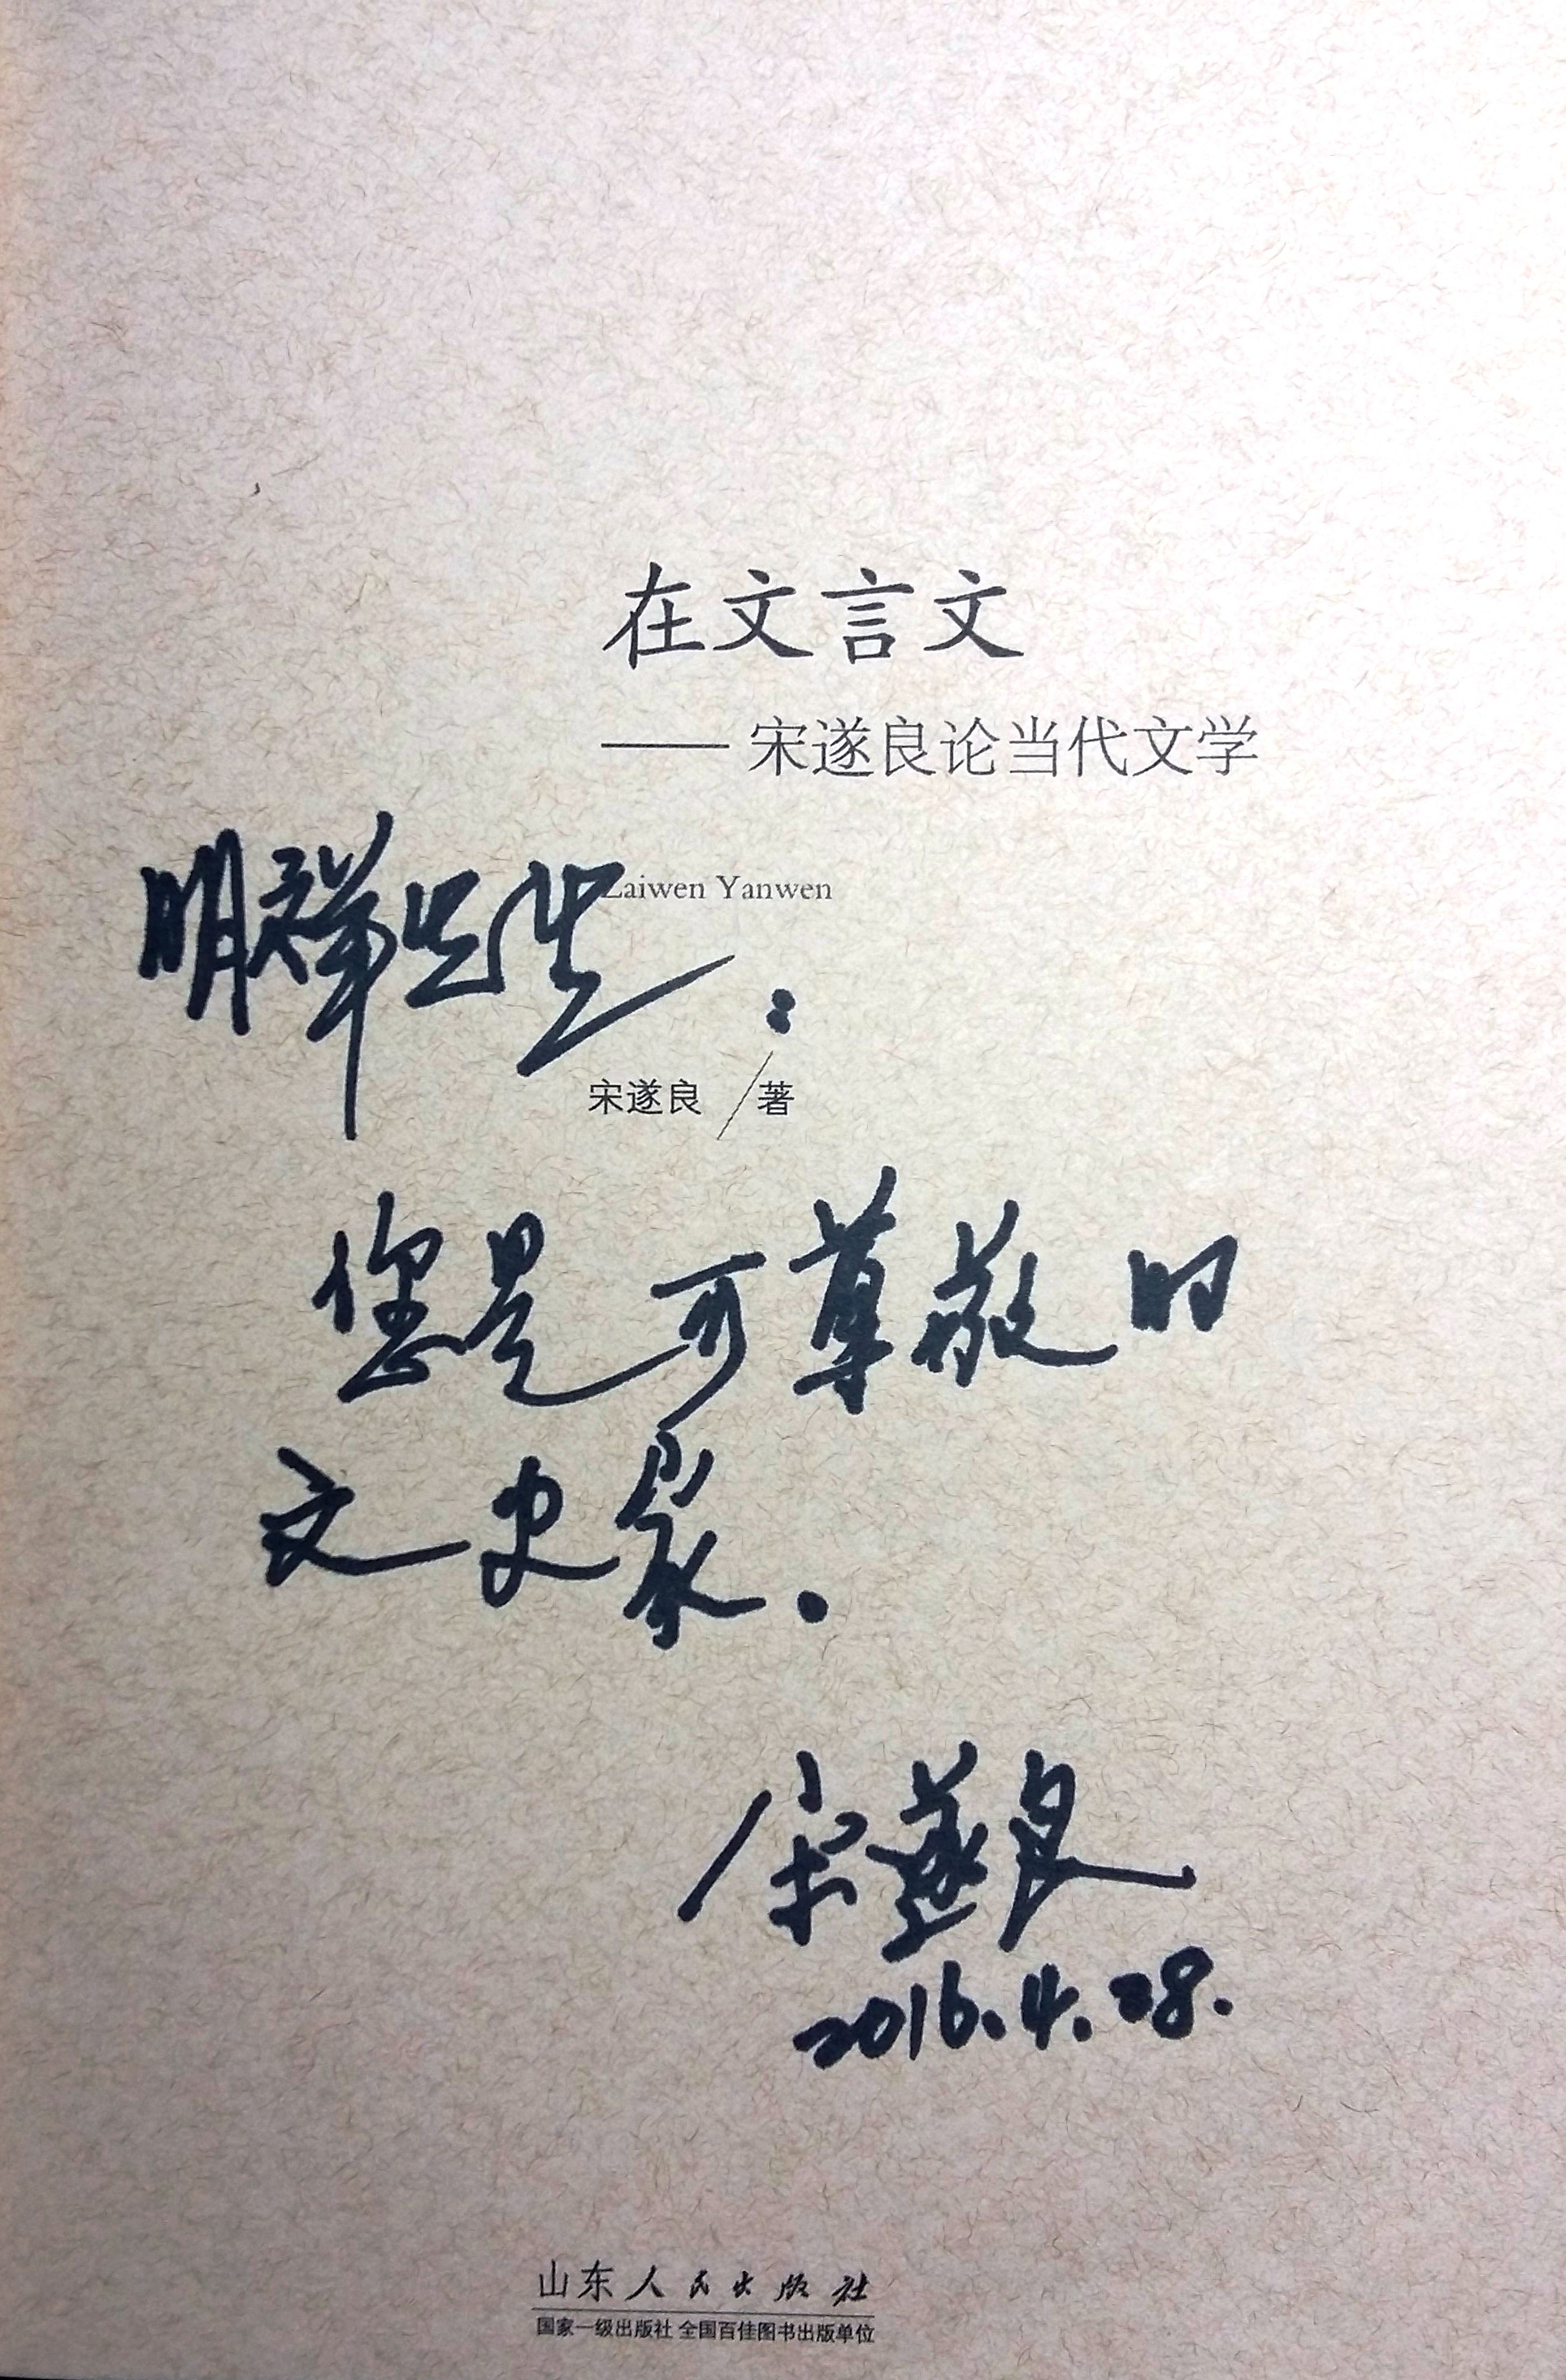 在文言文
——宋遂良论当代文学
Zaiwen Yanwen
明祥兄
宋遂良/著
您是可尊敬的
文史家.
宋遂良
2016.4.28.
山东人民出版社
国家一级出版社 全国百佳图书出版单位